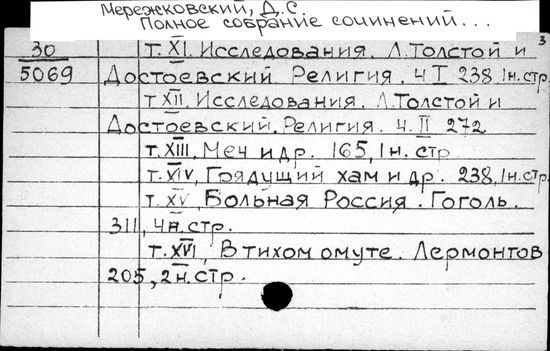 Мережковский, Д.С.
Полное собрание сочинений...
3
30 т. XI. Исследования. Л.Толстой и
5069 Достоевский. Религия. ч I 238, 1н.стр.
т XII. Исследования. Л.Толстой и
Достоевский. Религия. ч. II 272
т. XIII, Меч и др. 165, 1н. стр
т. XIV, Грядущий хам и др. 238, 1н.стр.
т. XV, Больная Россия. Гоголь.
311, 4н.стр.
т. XVI, В тихом омуте. Лермонтов
205, 2н.стр.